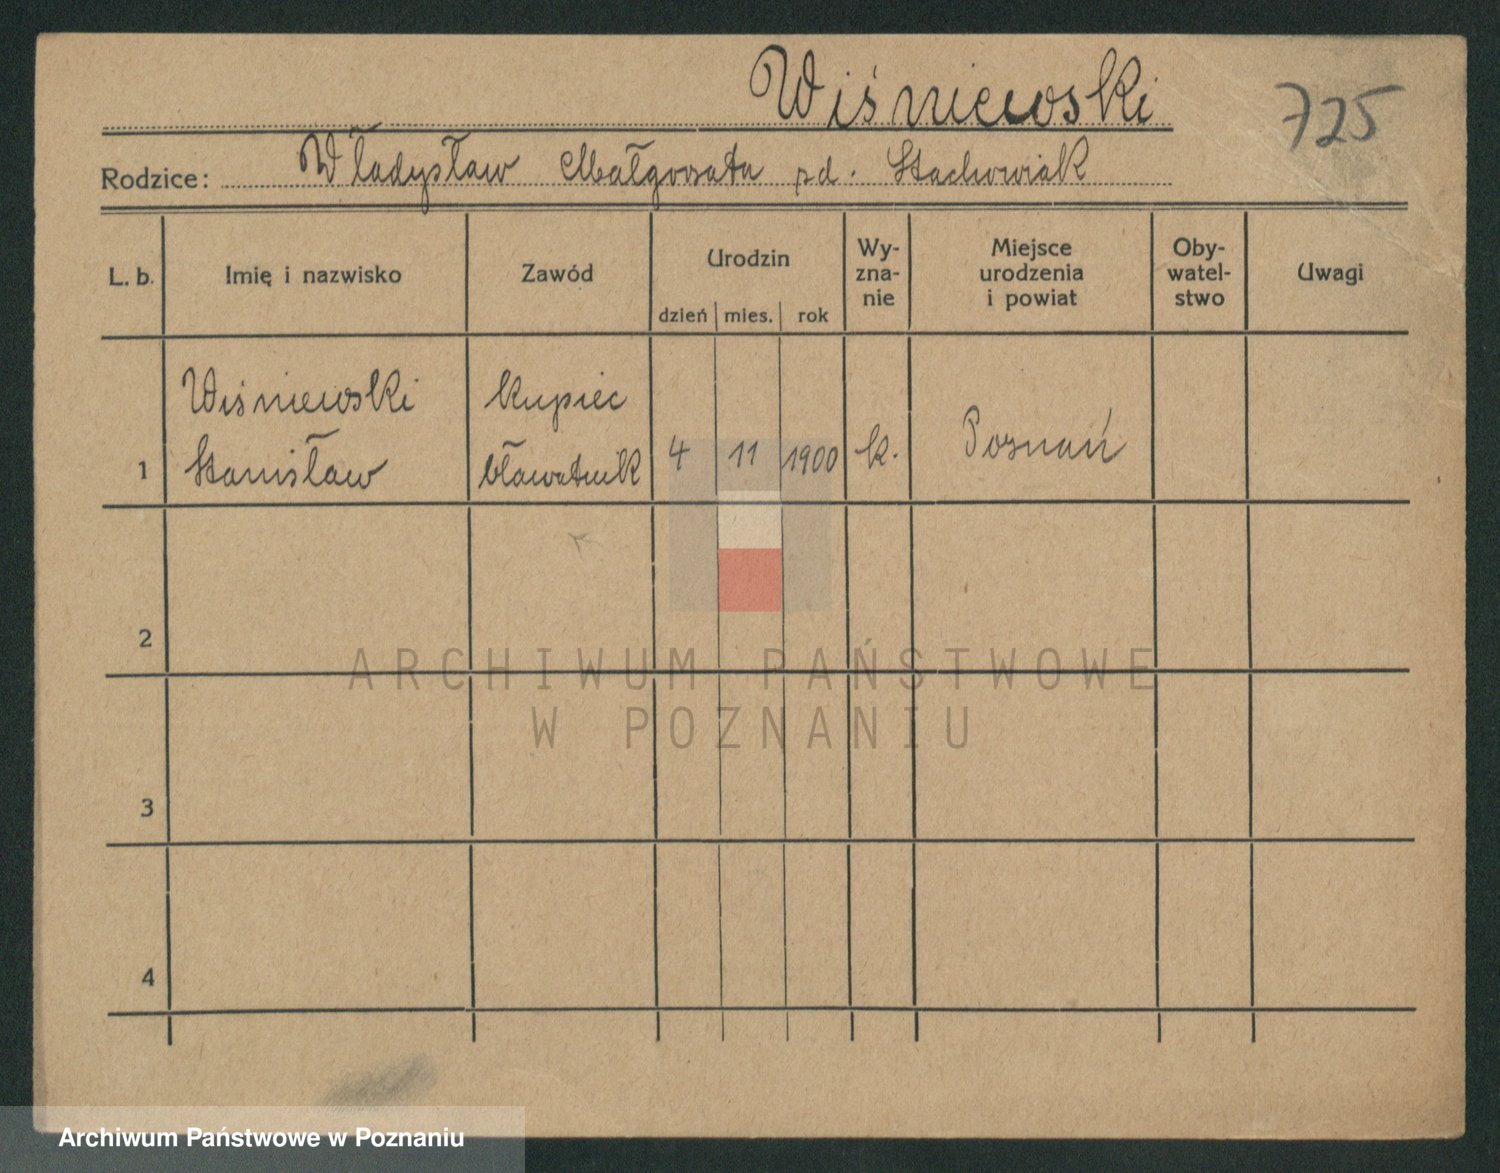 Wiśniewski
725
Rodzice: Władysław Małgorzata zd. Stachowiak
L. b. Imię i nazwisko Zawód Urodzin dzień mies. rok Wy-zna-nie Miejsce urodzenia i powiat Oby-watel-stwo Uwagi
Wiśniewski kupiec
1 Stanisław bławatnik 4 11 1900 k. Poznań
2
ARCHIWUM PAŃSTWOWE
W POZNANIU
3
4
Archiwum Państwowe w Poznaniu